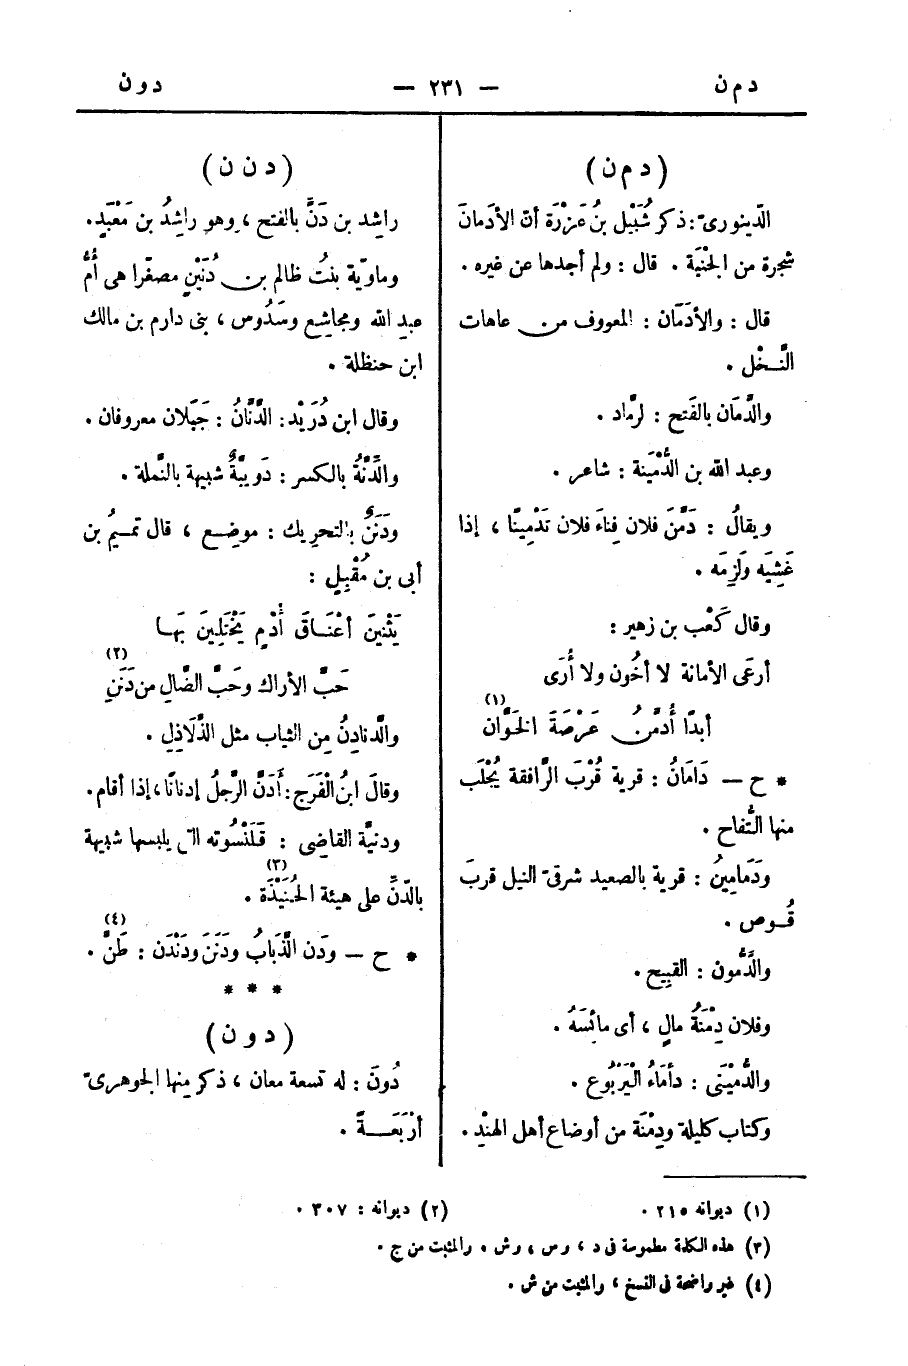 دمن — ٢٣١ — دون
(دمن)
الدّينورىّ: ذكر شُبَيْل بنُ عَزْرَة أنّ الأدْمانَ
شجرة من الجَنْبَة . قال : ولم أجدها عن غيره .
قال : والأَدَمَان : المعروف من عاهات
النَّخْل .
والدَّمَان بالفَتح : الرمّاد .
وعبد الله بن الدُّمَيْنة : شاعر .
ويقالُ : دَمَّنَ فلان فِناءَ فلان تَدْمِينًا ، إذا
غَشِيَه ولَزِمَه .
وقال كَعْب بن زهير :
أرعَى الأمانة لا أخُون ولا أُرَى
أبدًا أُدَمِّن عَرْصَةَ الخَوّان (١)
* ح – دَامَانُ : قرية قُرْبَ الرّافقة يُجْلَب
منها التُّفاح .
ودَمَامِينُ : قرية بالصعيد شرقىّ النيل قربَ
قُوص .
والدَّمُّون : القبيح .
وفلان دِمْنَةُ مالٍ ، أى مائسَهُ .
والدُّمَّيْنَى : دأمَاءُ اليَرْبُوع .
وكتاب كليلة ودِمْنَة من أوضاع أهل الهِنْدِ .
(دنن)
راشد بن دَنَّ بالفتح ، وهو راشِدُ بن مَعْبَدٍ .
وماويّة بنتُ ظالم بن دُنَيْنٍ مصغّرا هى أُمُّ
عبد الله ومجاشع وسَدُوس ، بنى دارم بن مالك
ابن حنظلة .
وقال ابن دُرَيْد : الدَّنَّانُ : جَبَلان معروفان .
والدِّنَّةُ بالكسر : دَويبَّةٌ شبيهة بالنَّملة .
ودَنَنٌ بالتحريك : موضع ، قال تميمُ بن
أبى بن مُقْبِلٍ :
يَثْنِينَ أعْنَاقَ أُدْمٍ يَخْتَلِينَ بَهَا
حَبَّ الأراك وحَبَّ الضَّالِ من دَنَنِ (٢)
والدنادِنُ من الثياب مثل الذَّلَاذِلِ .
وقالَ ابنُ الْفَرَج : أَدَنَّ الرَّجلُ إدنانًا ، إذا أقام .
ودنيَّة القاضى : قَلَنْسُوته التى يلبسها شبيهة
بالدّنِّ على هيئة الجُنَيْذَة (٣) .
* ح – ودَن الذُّبَابُ ودَنَنَ ودَنْدَن : طَنَّ (٤) .
* * *
(دون)
دُونَ : له تسعة معان ، ذكر منها الجوهرىّ
أرْبَعَةً .
(١) ديوانه ٢١٥ . (٢) ديوانه : ٣٠٧ .
(٣) هذه الكلمة مطموسة فى د ، وس ، وش . والمثبت من ج .
(٤) غير واضحة فى النسخ ، والمثبت من ش .